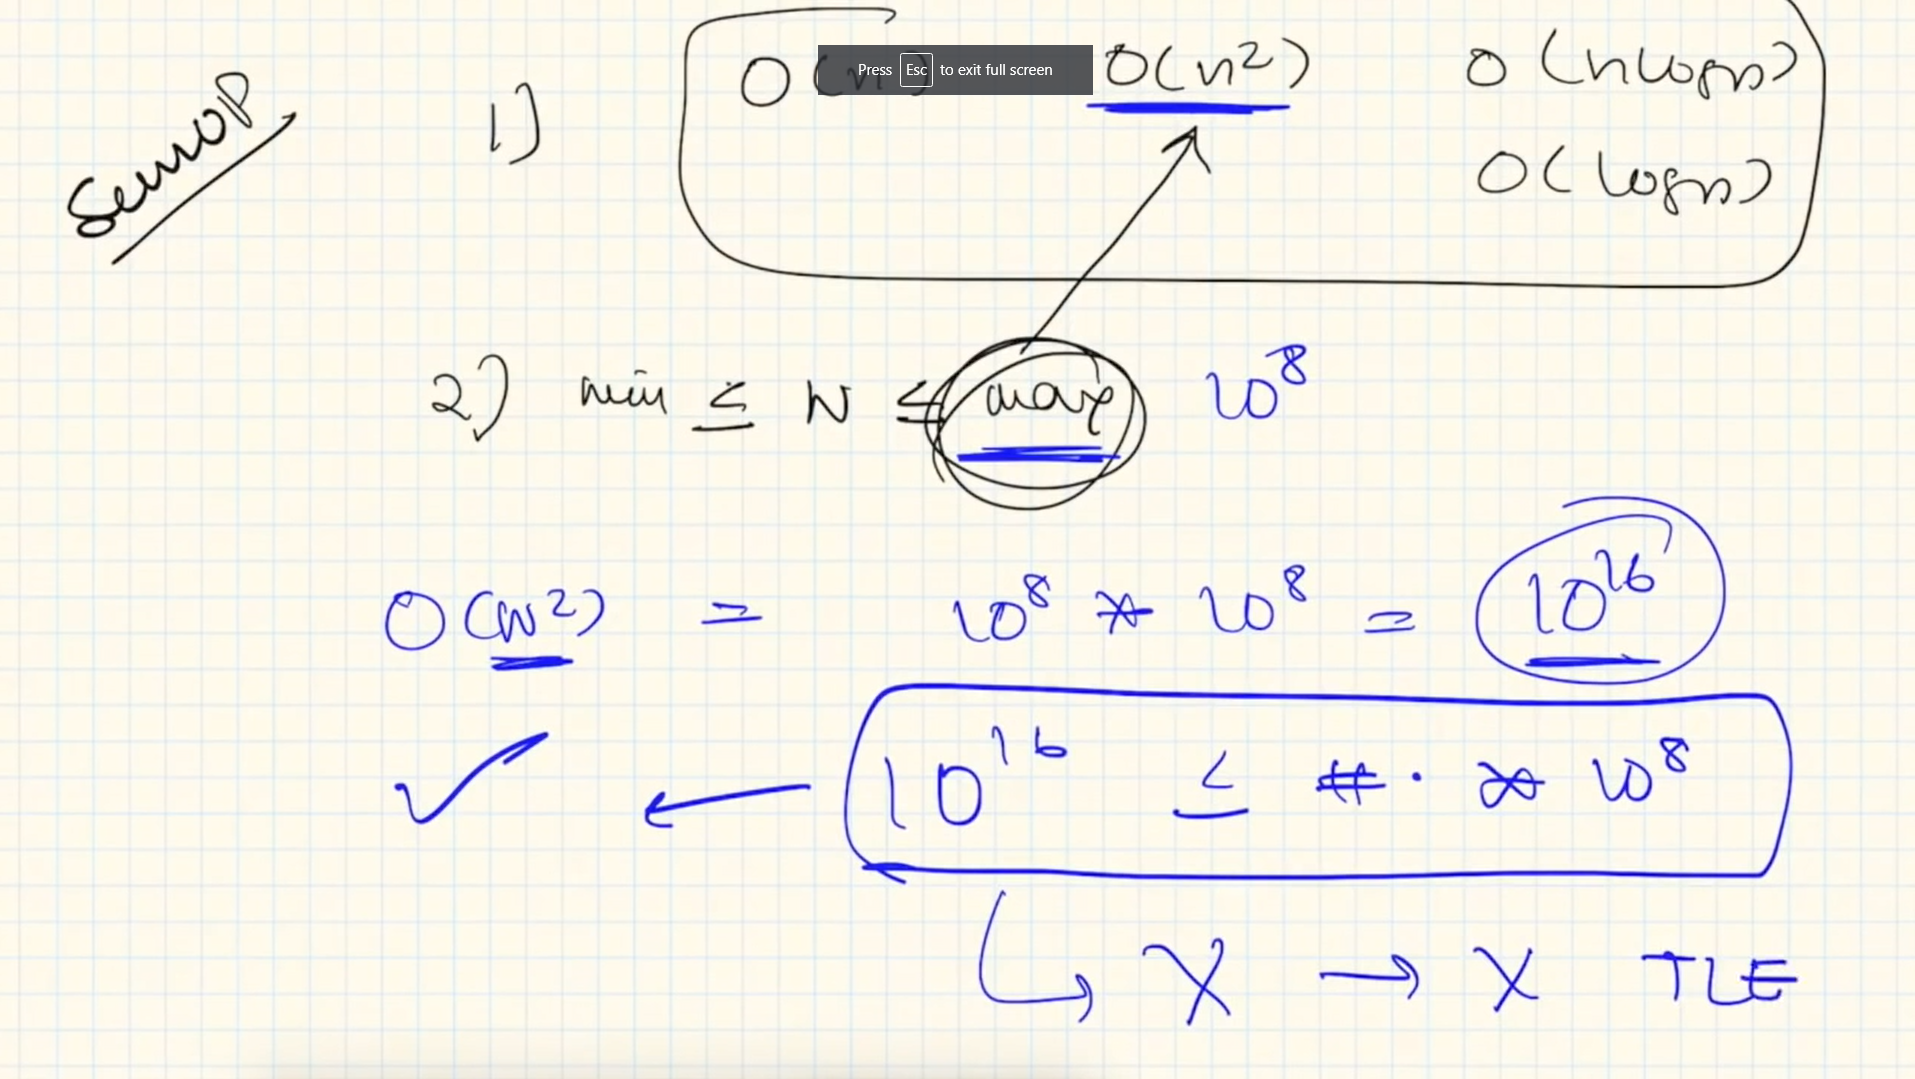 Press Esc to exit full screen
1) O(n) O(n²) O(nlogn)
O(logn)
2) min ≤ N ≤ max 10⁸
O(N²) = 10⁸ * 10⁸ = 10¹⁶
10¹⁶ ≤ # · * 10⁸
X → X TLE